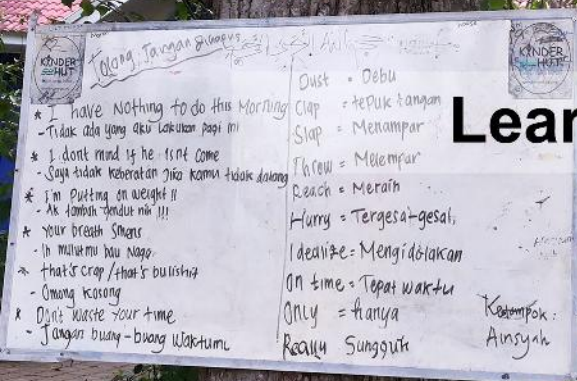 KINDER HUT
Tolong Jangan dihapus
KINDER HUT
* I have Nothing to do this Morning
- Tidak ada yang aku lakukan pagi ini
* I dont mind if he isnt come
- Saya tidak keberatan jika kamu tidak datang
* I'm Putting on weight !!
- Ak tambah gendut nih !!!
* Your breath Smens
- Ih mulutmu bau Naga
* that's crap / that's bullshit
- Omong kosong
* Don't waste your time
- Jangan buang-buang waktumu
Dust = Debu
Clap = tepuk tangan
Slap = Menampar
Throw = Melempar
Reach = Meraih
Hurry = Tergesa-gesa
Idealize = Mengidolakan
On time = Tepat waktu
Only = hanya
Really Sungguh
Kelompok :
Ainsyah
Lear